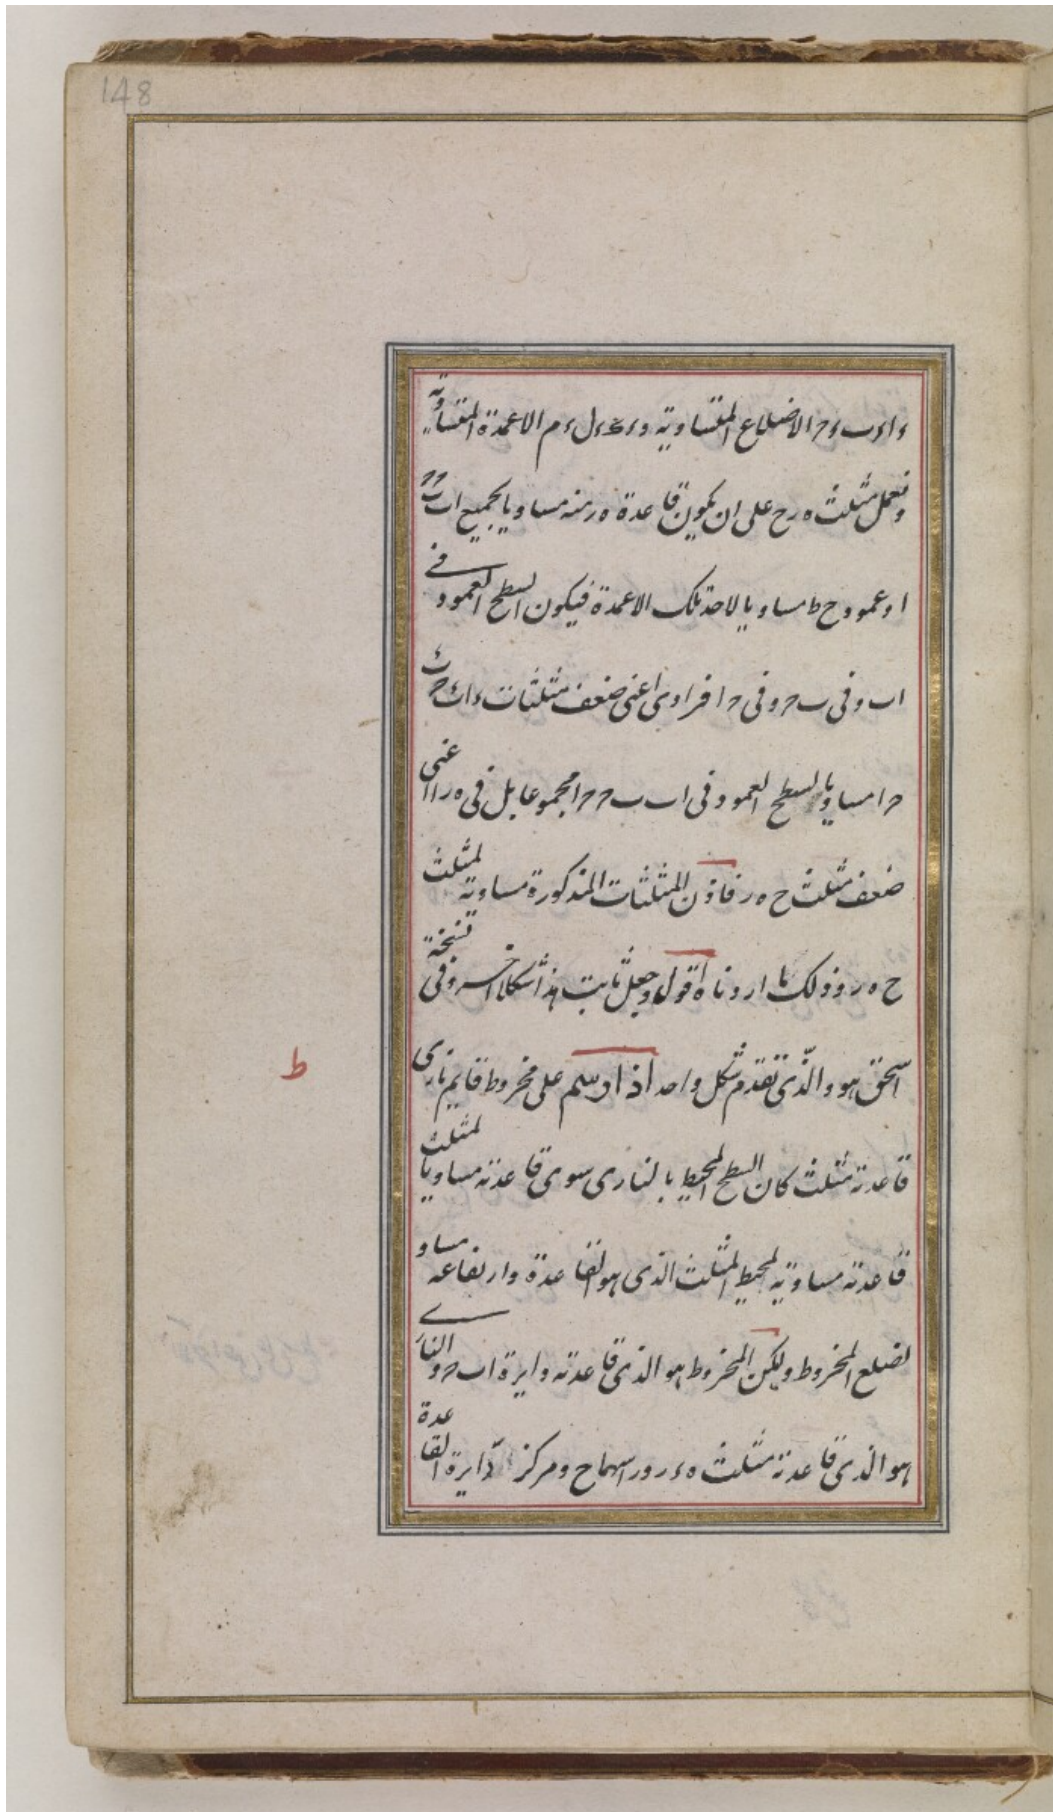 148
ء ا ء ب ء ح الاضلاع المتساوية و ء ك ء ل ء م الاعمدة المتساوية
ونعمل مثلث ه ر ح على ان يكون قاعدة ه ر منه مساويا لجميع ا ب ب ح ح
ا وعمود ح ط مساويا لاحد تلك الاعمدة فيكون السطح العمود فى
ا ب و فى ب ح و فى ح ا فرادى اعنى ضعف مثلثات ء ا ب ء ب ح ء
ح ا مساويا لسطح العمود فى ا ب ب ح ح ا مجموعا بل فى ه ر اعنى
ضعف مثلث ح ه ر فاذن المثلثات المذكورة مساوية لمثلث
ح ه ر وذلك ما اردناه اقول وجعل ثابت هذا شكلا اخر وفى نسخة
اسحق هو والذى تقدم شكل واحد اذا رسم على مخروط قايم نارى
ط
قاعدته مثلث كان السطح المحيط بالنارى سوى قاعدته مساويا لمثلث
قاعدته مساوية لمحيط المثلث الذى هو القاعدة وارتفاعه مساو
لضلع المخروط وليكن المخروط هو الذى قاعدته دايرة ا ب ح والنارى
هو الذى قاعدته مثلث ه ء ر وراسهما ح ومركز دايرة القاعدة